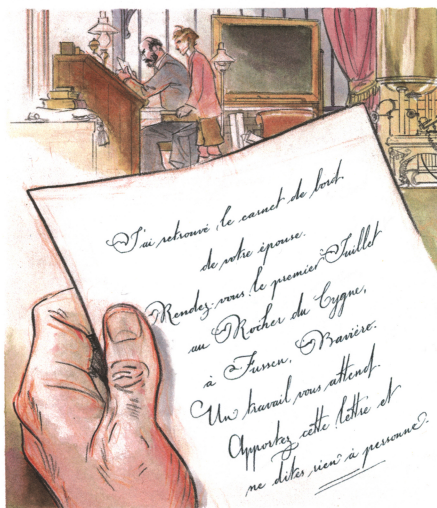 J'ai retrouvé le carnet de bord
de votre épouse.
Rendez-vous le premier Juillet
au Rocher du Cygne,
à Fussen, Bavière.
Un travail vous attend
Apportez cette lettre et
ne dites rien à personne.